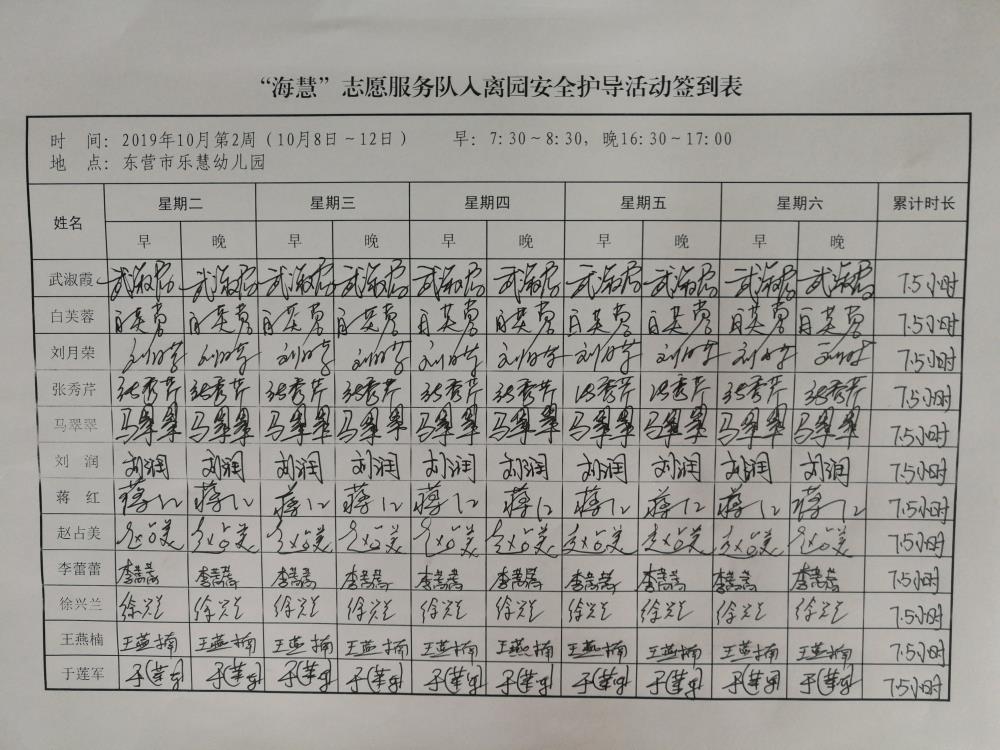 “海慧”志愿服务队入离园安全护导活动签到表
时 间：2019年10月第2周（10月8日～12日） 早：7:30～8:30，晚16:30～17:00
地 点：东营市乐慧幼儿园
姓名 星期二 星期三 星期四 星期五 星期六 累计时长
早 晚 早 晚 早 晚 早 晚 早 晚
武淑霞 武淑霞 武淑霞 武淑霞 武淑霞 武淑霞 武淑霞 武淑霞 武淑霞 武淑霞 武淑霞 7.5小时
白芙蓉 白芙蓉 白芙蓉 白芙蓉 白芙蓉 白芙蓉 白芙蓉 白芙蓉 白芙蓉 白芙蓉 白芙蓉 7.5小时
刘月荣 刘月荣 刘月荣 刘月荣 刘月荣 刘月荣 刘月荣 刘月荣 刘月荣 刘月荣 刘月荣 7.5小时
张秀芹 张秀芹 张秀芹 张秀芹 张秀芹 张秀芹 张秀芹 张秀芹 张秀芹 张秀芹 张秀芹 7.5小时
马翠翠 马翠翠 马翠翠 马翠翠 马翠翠 马翠翠 马翠翠 马翠翠 马翠翠 马翠翠 马翠翠 7.5小时
刘 润 刘润 刘润 刘润 刘润 刘润 刘润 刘润 刘润 刘润 刘润 7.5小时
蒋 红 蒋红 蒋红 蒋红 蒋红 蒋红 蒋红 蒋红 蒋红 蒋红 蒋红 7.5小时
赵占美 赵占美 赵占美 赵占美 赵占美 赵占美 赵占美 赵占美 赵占美 赵占美 赵占美 7.5小时
李蕾蕾 李蕾蕾 李蕾蕾 李蕾蕾 李蕾蕾 李蕾蕾 李蕾蕾 李蕾蕾 李蕾蕾 李蕾蕾 李蕾蕾 7.5小时
徐兴兰 徐兴兰 徐兴兰 徐兴兰 徐兴兰 徐兴兰 徐兴兰 徐兴兰 徐兴兰 徐兴兰 徐兴兰 7.5小时
王燕楠 王燕楠 王燕楠 王燕楠 王燕楠 王燕楠 王燕楠 王燕楠 王燕楠 王燕楠 王燕楠 7.5小时
于莲军 于莲军 于莲军 于莲军 于莲军 于莲军 于莲军 于莲军 于莲军 于莲军 于莲军 7.5小时